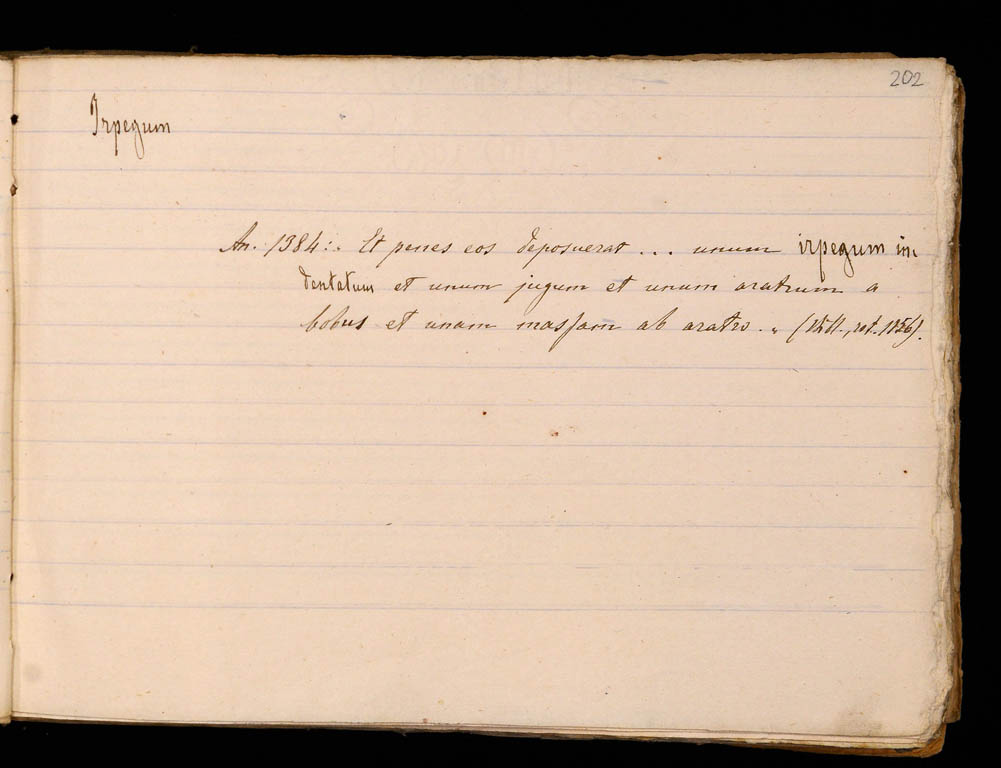 202
Irpegum
An. 1384:. Et penes eos deposuerat ... unum irpegum in-
dentatum et unum jugum et unum aratrum a
bobus et unam massam ab aratro. „ ( rot. 1156).